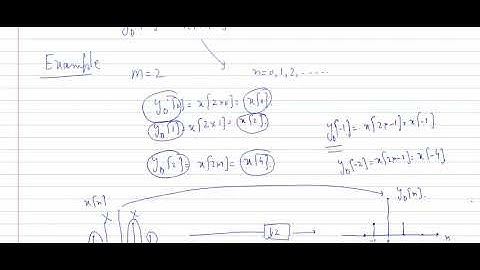 Example
m=2 n=0,1,2,------
y_D[0] = x[2×0] = x[0]
y_D[1] = x[2×1] = x[2]
y_D[-1] = x[2×-1] = x[-1]
y_D[2] = x[2×2] = x[4]
y_D[-2] = x[2×-1] = x[-4]
x[n] y_D[n].
↓2
n